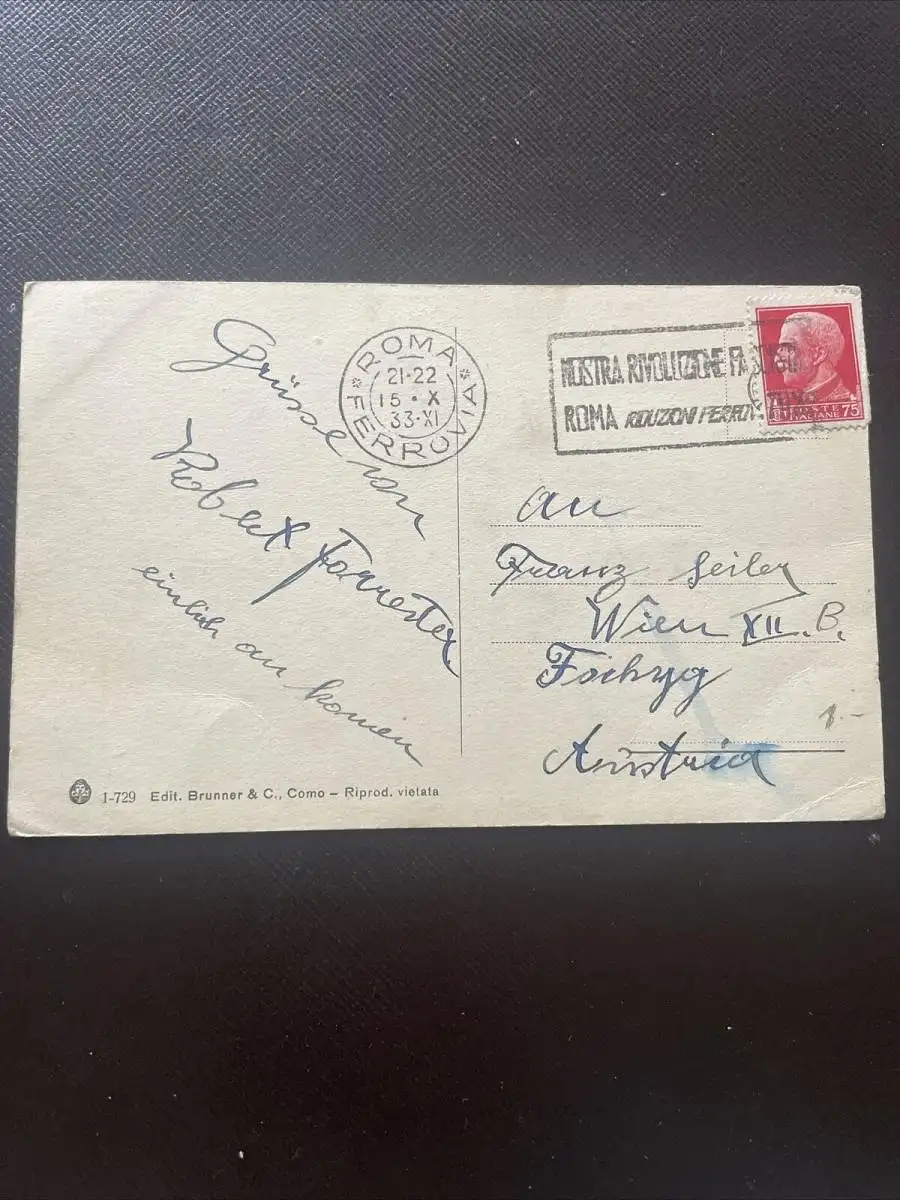 Grüsse von
Robert Forrester
ROMA
FERROVIA
21·22
15·X
33·XI
MOSTRA RIVOLUZIONE FASCISTA
ROMA RIDUZIONI FERROV
POSTE ITALIANE 75
an
Franz Seiler
Wien XII. B.
Austria
1.-
1-729 Edit. Brunner & C., Como – Riprod. vietata